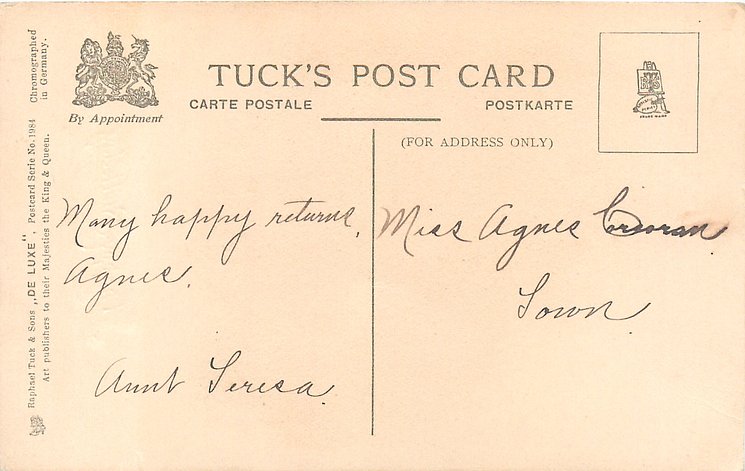 Raphael Tuck & Sons „DE LUXE", Postcard Serie No. 1984
Art publishers to their Majesties the King & Queen.
Chromographed
in Germany.
By Appointment
TUCK'S POST CARD
CARTE POSTALE
POSTKARTE
(FOR ADDRESS ONLY)
Many happy returns,
Agnes.
Aunt Teresa
Miss Agnes Corcoran
Town.
TRADE MARK